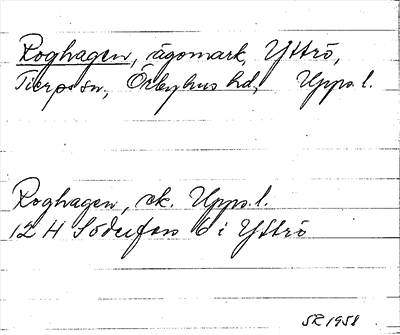 Roghagen, ägomark, Yttrö,
Tierps sn, Örbyhus hd, Upps. l.
Roghagen, ek. Upps. l.
12 H Söderfors 6 i Yttrö
SR 1958